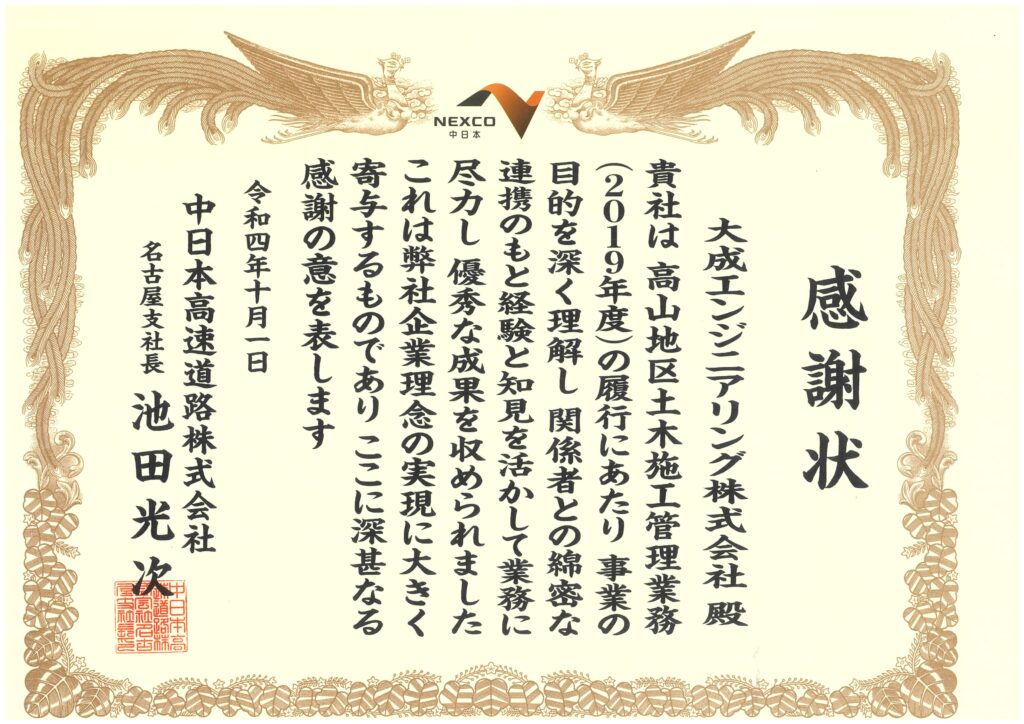 NEXCO
中日本
感謝状
大成エンジニアリング株式会社 殿
貴社は 高山地区土木施工管理業務
(2019年度)の履行にあたり 事業の
目的を深く理解し 関係者との綿密な
連携のもと経験と知見を活かして業務に
尽力し 優秀な成果を収められました
これは弊社企業理念の実現に大きく
寄与するものであり ここに深甚なる
感謝の意を表します
令和四年十月一日
中日本高速道路株式会社
名古屋支社長 池田光次
中日本高
速道路株
式会社名古
屋支社長印